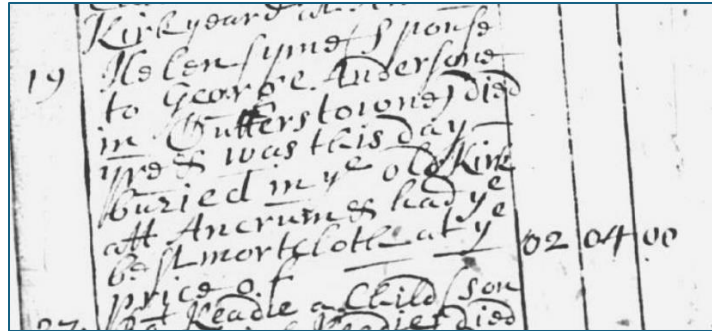 Kirkyeard at
19 Helen Syme Spouse
to George Andersone
in Gutterstoune died
yre & was this day
buried in ye old Kirk
att Ancrum & had ye
best mortcloth at ye
price of 02 04 00
Keadie a Child Son
died